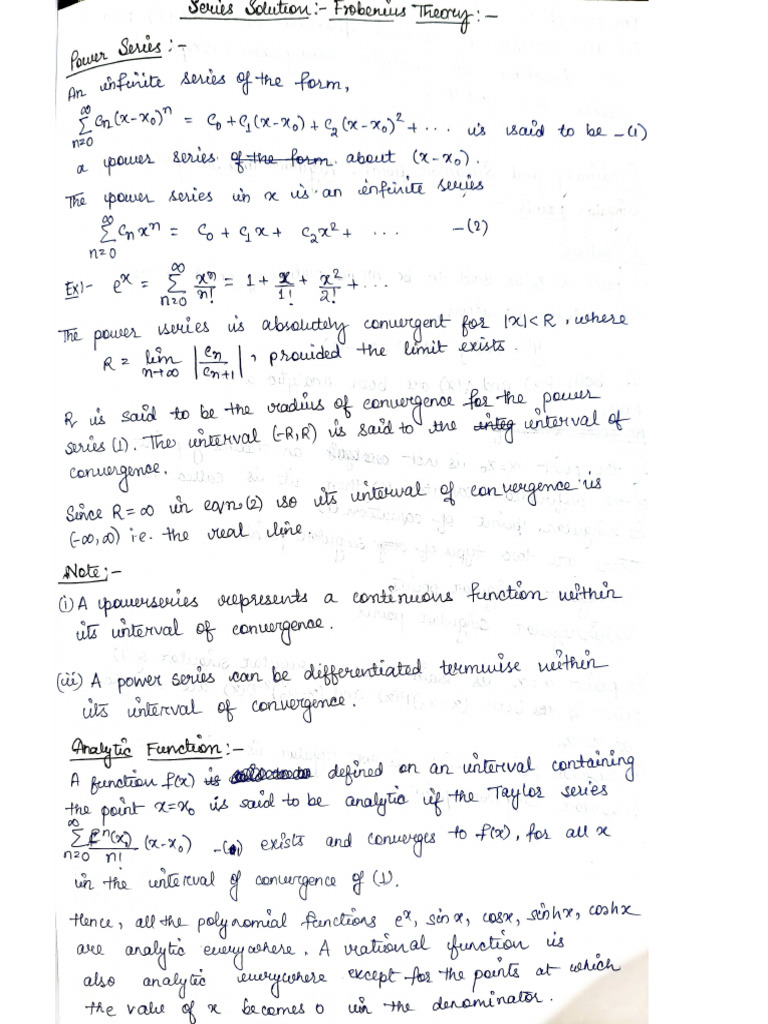 Series Solution:- Frobenius Theory:-
Power Series:-
An infinite series of the form,
∞∑n=0 Cn(x-x₀)ⁿ = C₀ + C₁(x-x₀) + C₂(x-x₀)² + ... is said to be -(1)
a power series of the form about (x-x₀).
The power series in x is an infinite series
∞∑n=0 Cn xⁿ = C₀ + C₁x + C₂x² + ... -(2)
Ex:- eˣ = ∞∑n=0 xⁿ/n! = 1 + x/1! + x²/2! + ...
The power series is absolutely convergent for |x|<R, where
R = lim n→∞ |Cn/Cn+1|, provided the limit exists.
R is said to be the radius of convergence for the power
series (1). The interval (-R,R) is said to the integ interval of
convergence.
Since R=∞ in eqn(2) so its interval of convergence is
(-∞,∞) i.e. the real line.
Note:-
(i) A powerseries represents a continuous function within
its interval of convergence.
(ii) A power series can be differentiated termwise within
its interval of convergence.
Analytic Function:-
A function f(x) is defined on an interval containing
the point x=x₀ is said to be analytic if the Taylor series
∞∑n=0 fⁿ(x₀)/n! (x-x₀) -(1) exists and converges to f(x), for all x
in the interval of convergence of (1).
Hence, all the polynomial functions eˣ, sinx, cosx, sinhx, coshx
are analytic everywhere. A rational function is
also analytic everywhere except for the points at which
the value of x becomes 0 in the denominator.